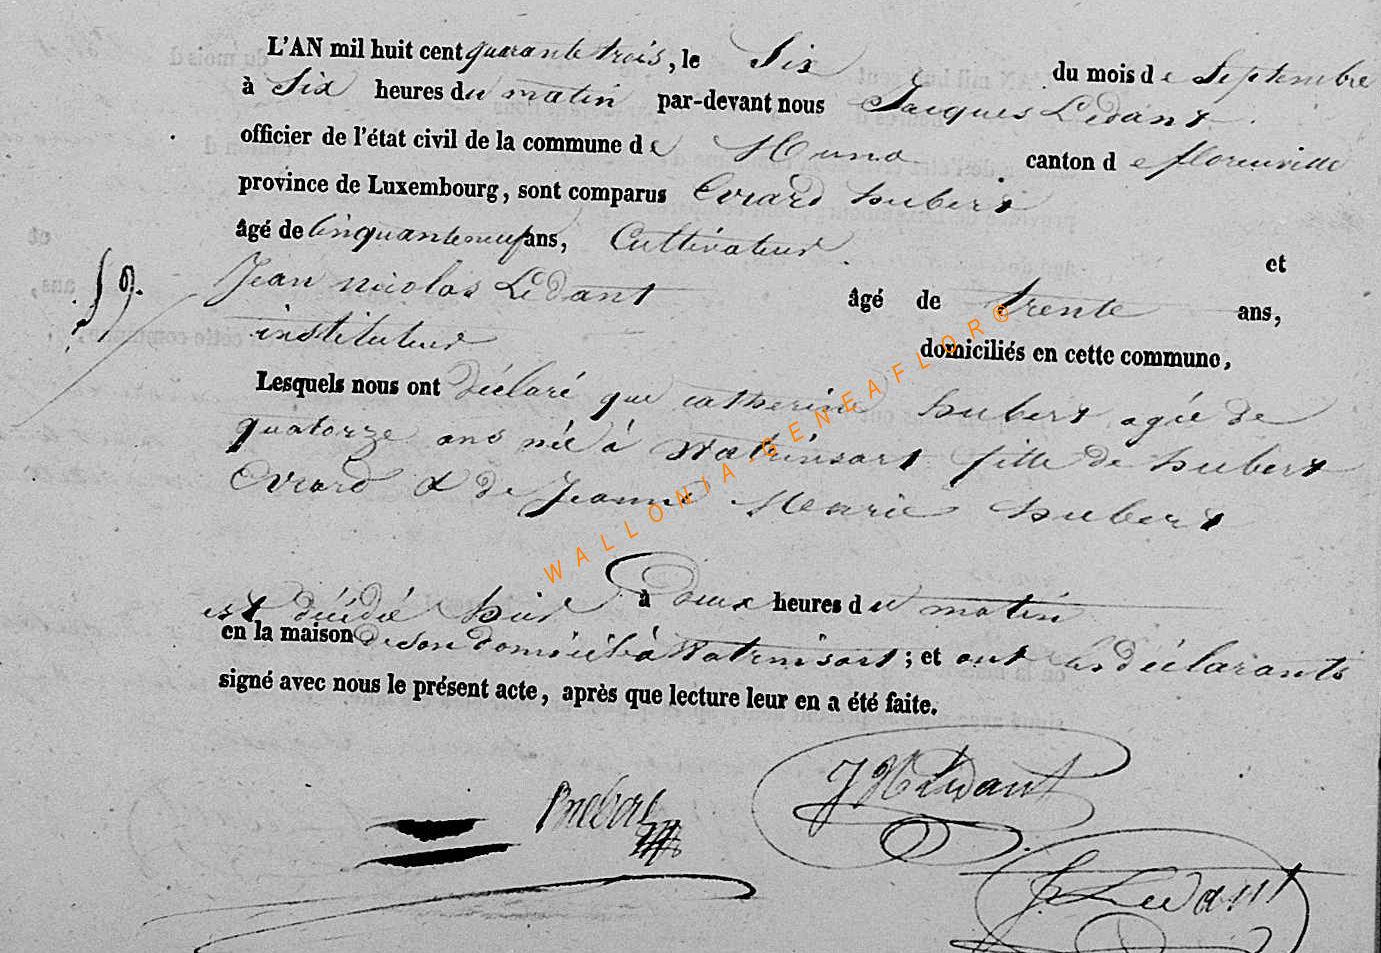 L'AN mil huit cent quarante trois, le Six du mois de Septembre
à Six heures du matin par-devant nous Jacques Lédant
officier de l'état civil de la commune de Muno canton de florenville
province de Luxembourg, sont comparus Evrard hubert
âgé de cinquanteneuf ans, Cultivateur et
59.
Jean nicolas Lédant âgé de trente ans,
instituteur domiciliés en cette commune,
Lesquels nous ont déclaré que catherine hubert agée de
quatorze ans née à Watrinsart fille de hubert
Evrard & de Jeanne Marie hubert
est décédé hier à deux heures du matin
en la maison de son domicile à Watrinsart ; et ont les déclarants
signé avec nous le présent acte, après que lecture leur en a été faite.
JN Lédant
J. Ledant
WALLONIA-GENEAFLOR®